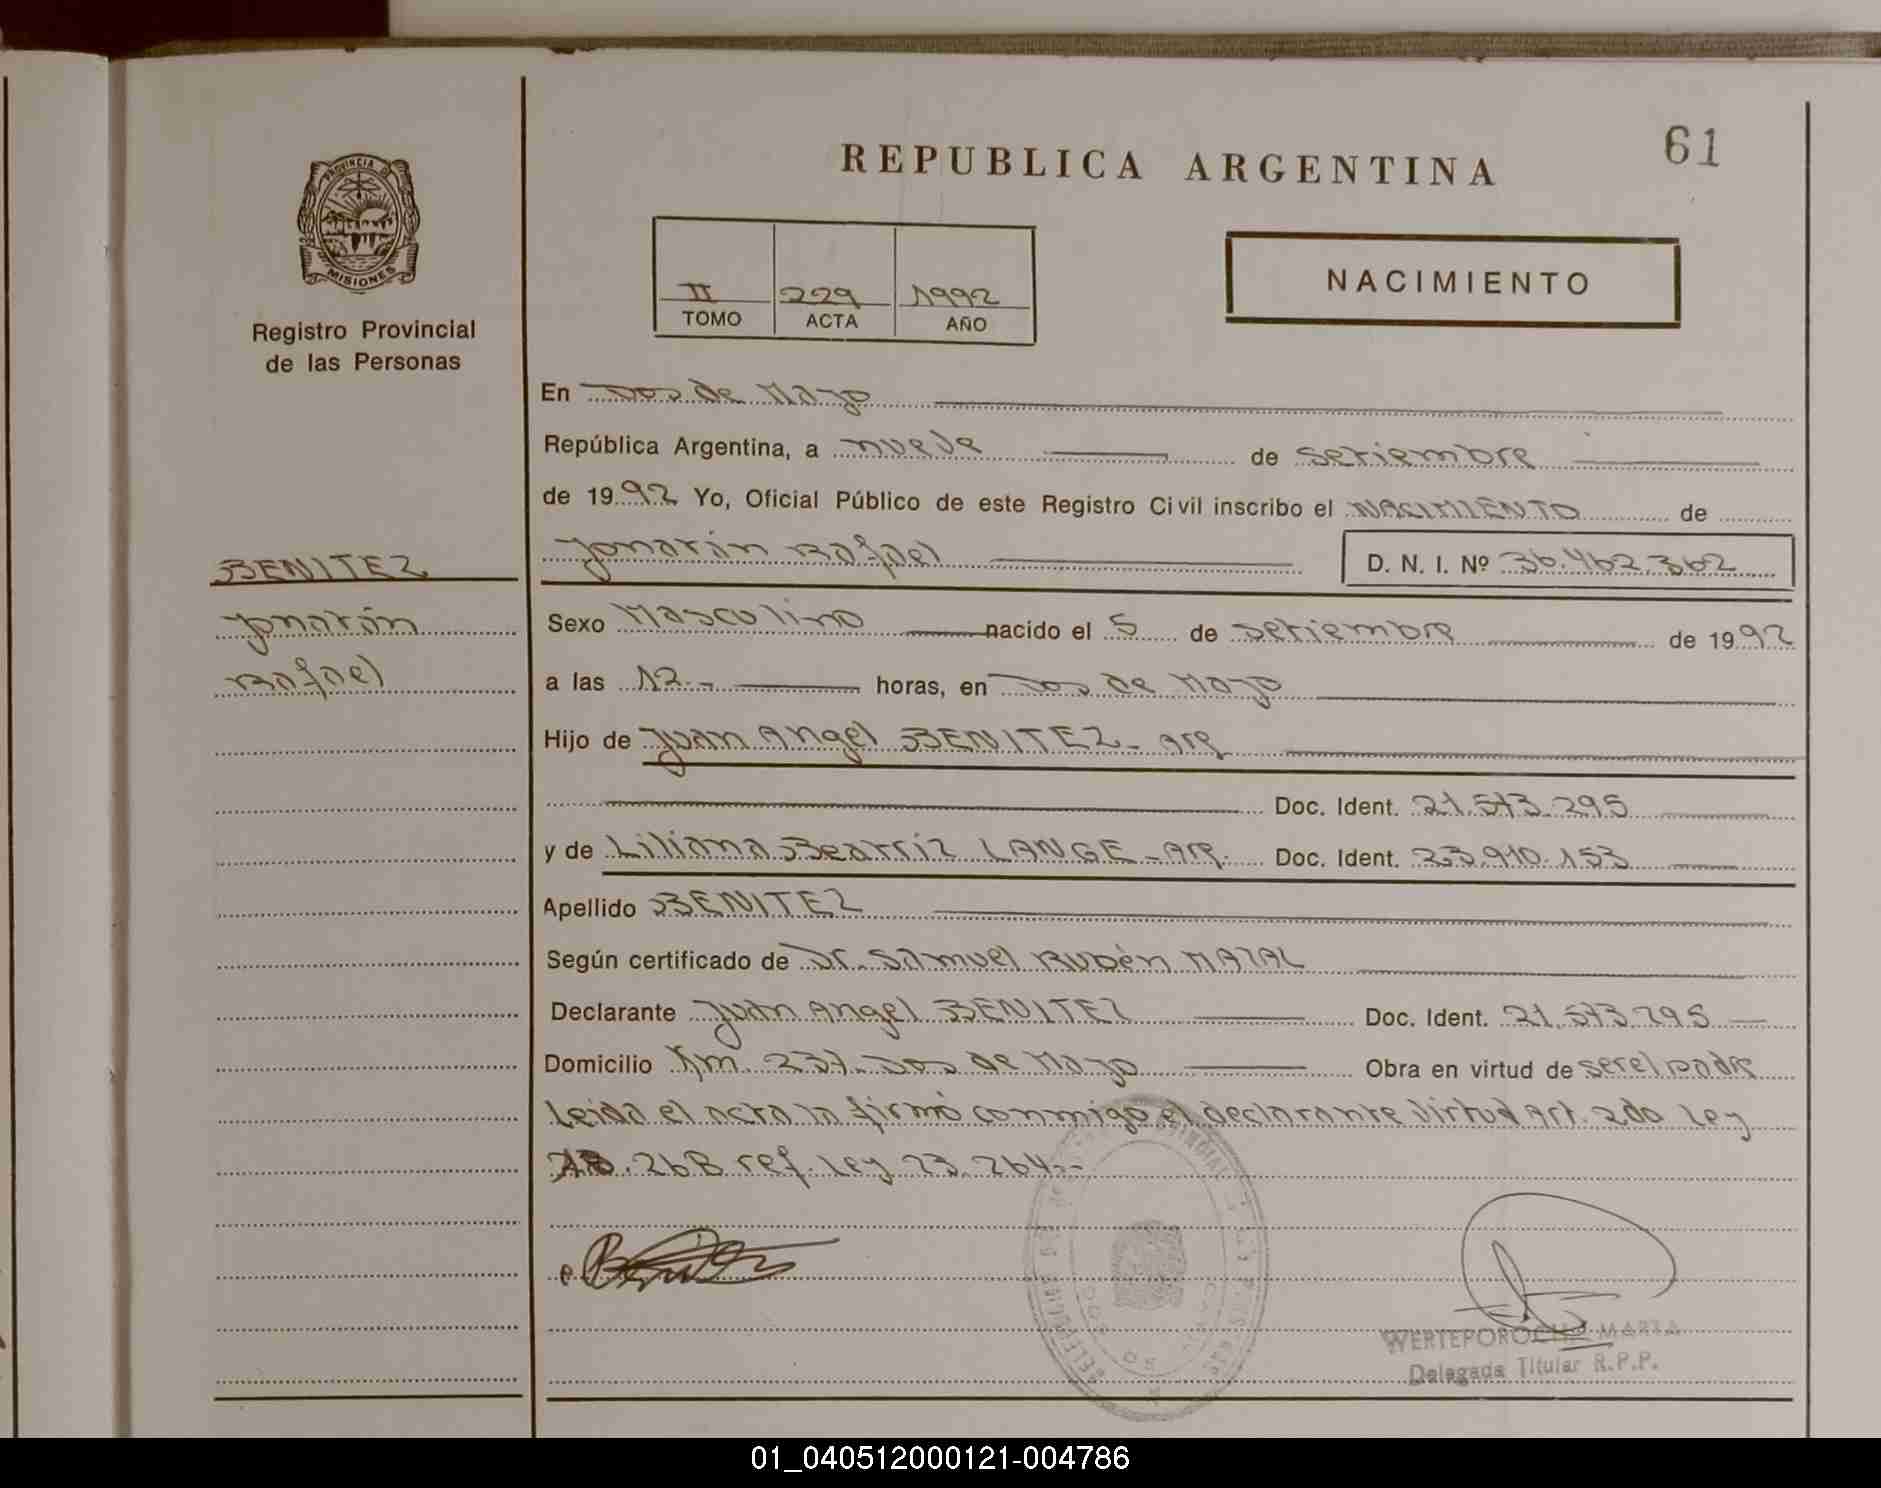 61
REPUBLICA ARGENTINA
PROVINCIA DE
MISIONES
Registro Provincial
de las Personas
II 229 1992
TOMO ACTA AÑO
NACIMIENTO
En Dos de Mayo
República Argentina, a nueve de setiembre
de 1992 Yo, Oficial Público de este Registro Civil inscribo el NACIMIENTO de
Jonatán Rafael D. N. I. Nº 36.462.362
BENITEZ
Jonatán
Rafael
Sexo Masculino nacido el 5 de setiembre de 1992
a las 12.- horas, en Dos de Mayo
Hijo de Juan Angel BENITEZ - Arg
Doc. Ident. 21.573.295
y de Liliana Beatriz LANGE - Arg. Doc. Ident. 23.910.153
Apellido BENITEZ
Según certificado de Dr. Samuel Rubén MAZAL
Declarante Juan Angel BENITEZ Doc. Ident. 21.573.295
Domicilio Km. 237 - Dos de Mayo Obra en virtud de ser el padre
Leida el acta la firmó conmigo el declarante virtud Art. 2do Ley
18.268 ref. Ley 23.264.-
WERTEPOROCH MARTA
Delegada Titular R.P.P.
01_040512000121-004786